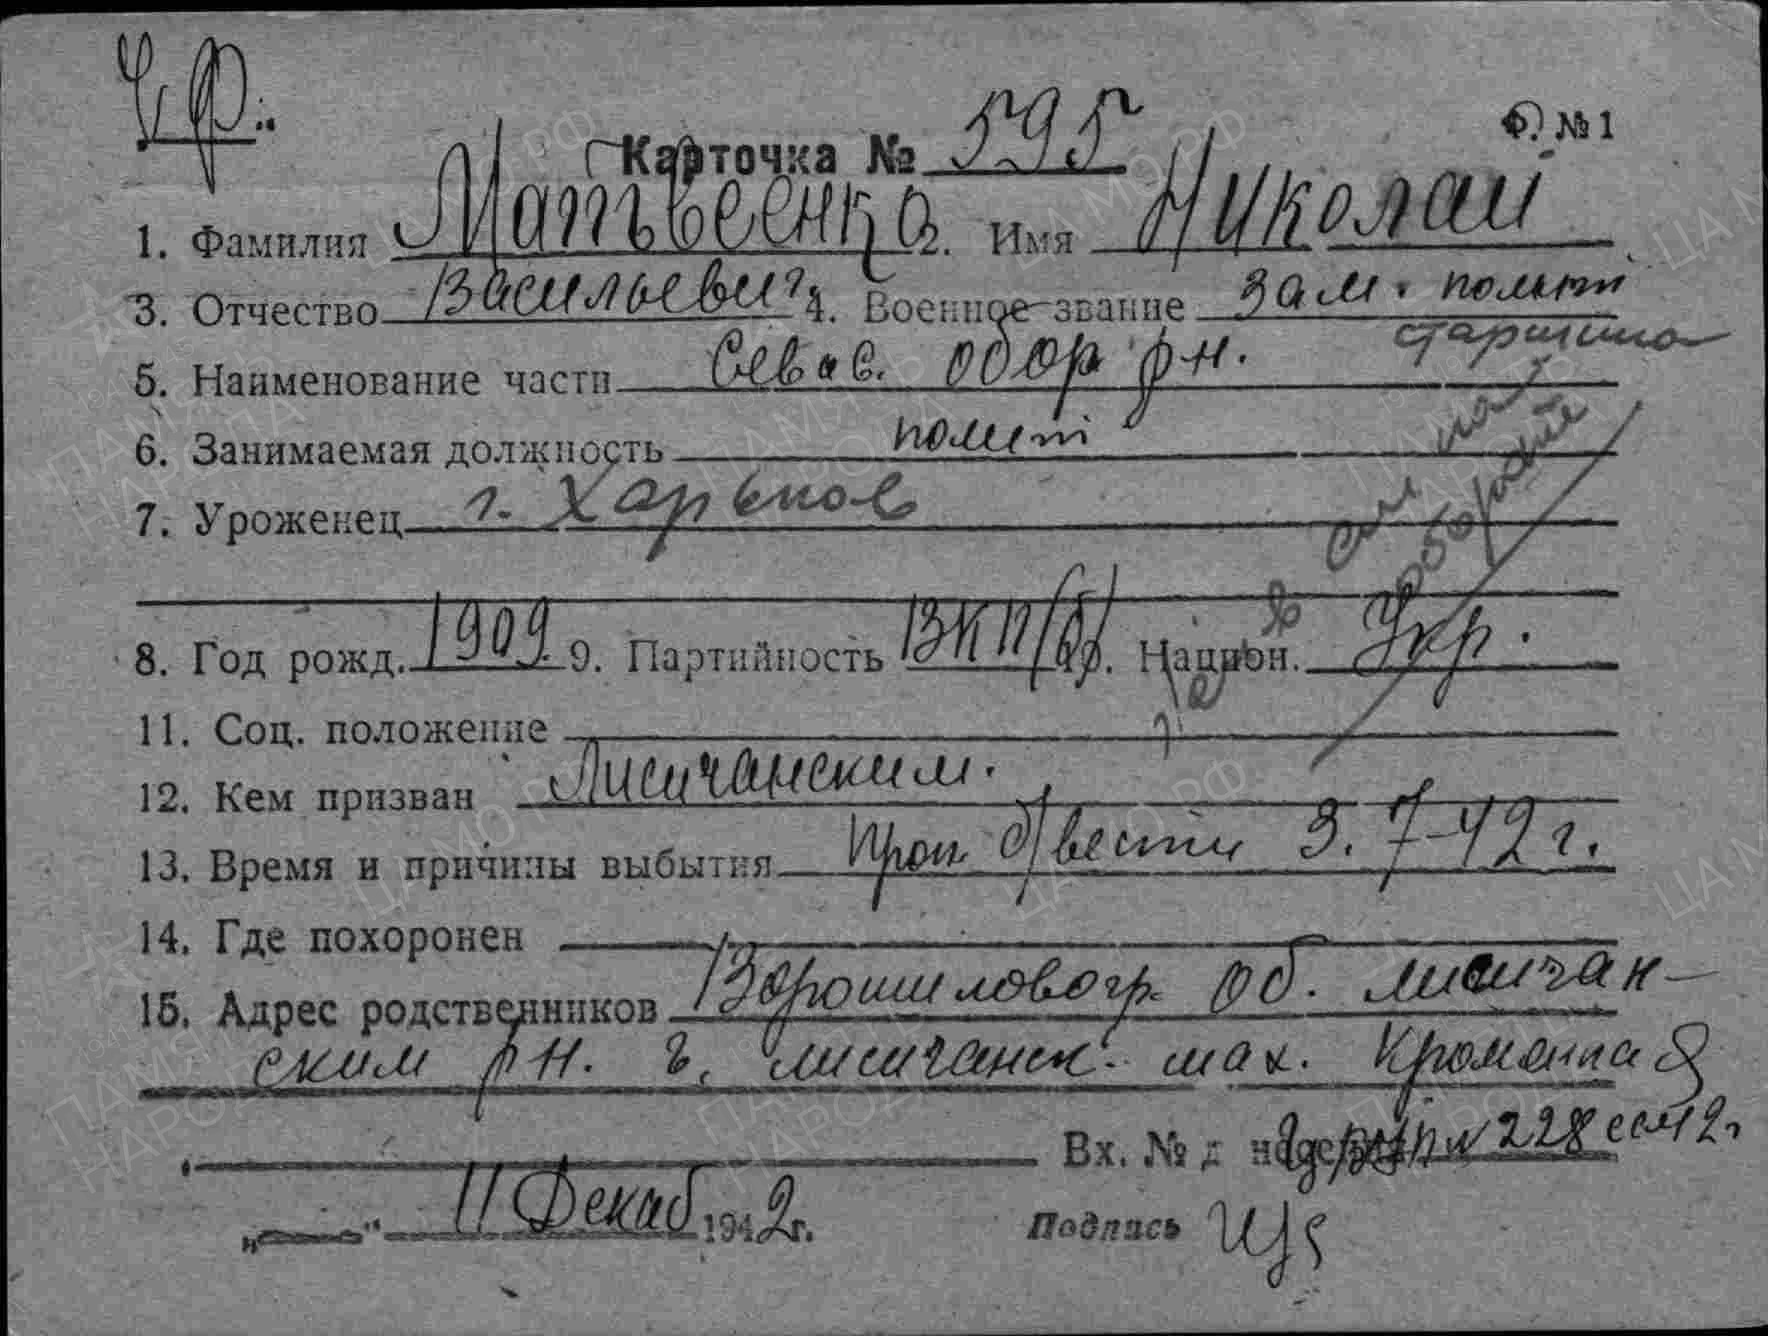 Ч.Ф.
Карточка № 595
Ф. № 1
1. Фамилия Матвеенко 2. Имя Николай
3. Отчество Васильевич 4. Военное звание зам. полит
старшина
5. Наименование части Севас. обор р-н.
6. Занимаемая должность полит
7. Уроженец г. Харьков
8. Год рожд. 1909. 9. Партийность ВКП/б/ 10. Национ. Укр.
11. Соц. положение
12. Кем призван Лисичанским.
13. Время и причины выбытия проп. б/вести 3.7-42 г.
14. Где похоронен
15. Адрес родственников Ворошиловогр. об. лисичан-
ским рн. г. лисичанск. шах.
Вх. № 228
11 Декаб 1942 г. Подпись